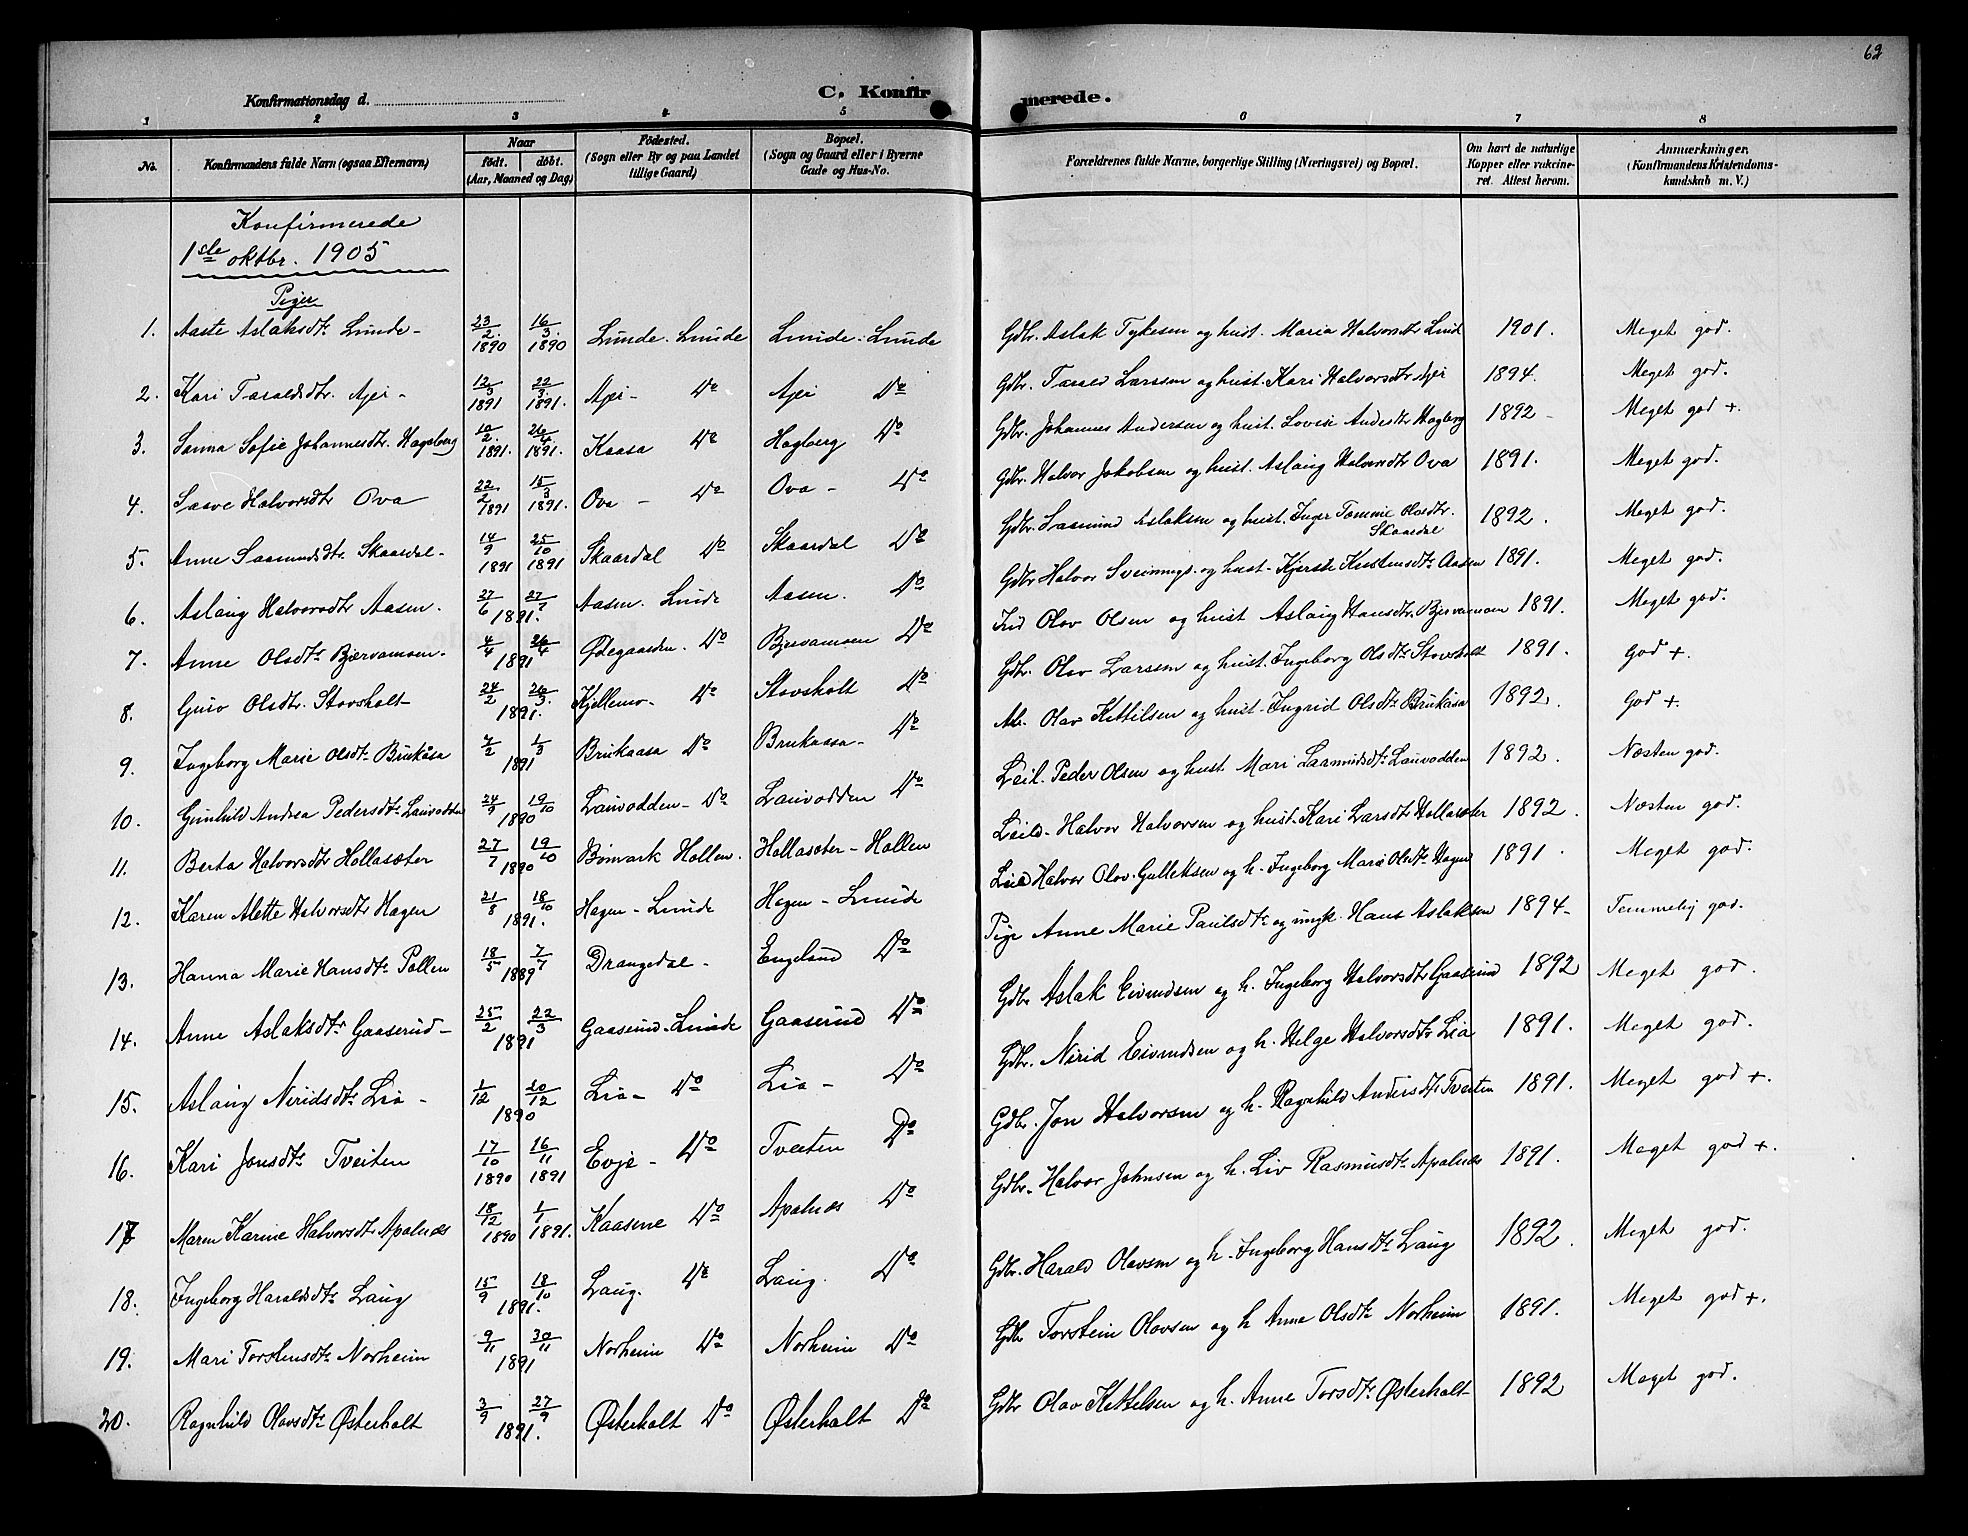 62
Konfirmationsdag d.
C. Konfirmerede.
1 2 3 4 5 6 7 8
No.
Konfirmandens fulde Navn (ogsaa Efternavn)
Naar født. døbt. (Aar, Maaned og Dag)
Fødested. (Sogn eller By og paa Landet tillige Gaard)
Bopæl. (Sogn og Gaard eller i Byerne Gade og Hus-No.
Forældrenes fulde Navne, borgerlige Stilling (Næringsvei) og Bopæl.
Om havt de naturlige Kopper eller vakcineret. Attest herom.
Anmærkninger, (Konfirmandens Kristendomskundskab m. V.)
Konfirmerede
1ste oktbr. 1905
Piger
1. Aaste Aslaksdtr Lunde - 23/2 1890 16/3 1890 Lunde. Lunde Lunde. Lunde Gdbr. Aslak Tykesen og hust. Maria Halvorsdtr Lund 1901. Meget god.
2. Kari Taraldsdtr. Ajer - 12/3 1891 22/3 1891. Ajer - Do Ajer Do Gdbr. Tarald Larssen og hust. Kari Halvorsdtr Ajer 1894. Meget god.
3. Sanna Sofie Johannesdtr. Hagsberg 10/2 1891. 26/4 1891. Kaasa Do Hagberg Do Gdbr. Johannes Andersen og hust. Lovise Andersdtr Hagberg 1892 - Meget god +.
4. Saave Halvorsdtr Ova 22/2 1891 15/3 1891. Ova - Do Ova - Do Gdbr. Halvor Jakobsen og hust. Aslaug Halvorsdtr Ova 1891. Meget god.
5. Anne Saamundsdtr Skaardal - 14/9 1891 25/10 1891 Skaardal Do Skaardal Do Gdbr. Saamund Aslaksen og hust. Inger Tomine Olsdtr. Skaardal 1892. Meget god.
6. Aslaug Halvorsdtr Aasen. 27/6 27/7 1891. Aasen. Lunde Aasen. Do Gdbr Halvor Sveinungs. og hust. Kjerste Kristensdtr Aasen 1891. Meget god.
7. Anne Olsdtr Bjervamoen. 4/4 26/4 1891 Ødegaarden. Do Bjervamoen Do Ind Olav Olsen og hust Aslaug Hansdtr Bjervamoen 1891. Meget god.
8. Guro Olsdtr. Stovsholt 24/2 26/3 1891. Kjellemo - Do Stovsholt Do Gdbr. Olav Larssen og hust. Ingeborg Olsdtr Stovsholt 1891. God +.
9. Ingeborg Marie Olsdtr Brukåsa 4/2 1/3 1891 Brukaasa Do Brukaasa - Do Olav Kittilsen og hust. Ingrid Olsdtr Brukåsa 1892. God +.
10. Gunhild Andrea Pedersdtr Lauvodden 24/9 19/10 1890 Lauvodden - Do Lauvodden Do Leil. Peder Olsen og hust Mari Saamundsdtr Lauvodden 1892. Næsten god.
11. Berta Halvorsdtr Hollasæter 27/7 19/10 1890 Bømark Hollen. Hollasæter - Hollen Leil. Halvor Halvorsen og hust. Kari Larsdtr Hollasæter 1892. Næsten god.
12. Karen Alette Halvorsdtr Hagen 21/8 18/10 1891. Hagen - Lunde Hagen - Lunde Leil Halvor Olav Gulleksen og h. Ingeborg Marie Olsdtr Hagen 1891. Meget god.
13. Hanna Marie Hansdtr Pollen 18/5 7/7 1889 Drangedal - Engelund Do Pige Anne Marie Paulsdtr og ungk. Hans Aslaksen 1894 - Temmelig god.
14. Anne Aslaksdtr Gaaserud - 25/2 22/3 1891 Gaaserud. Lunde Gaaserud Do Gdbr Aslak Eivindsen og h. Ingeborg Halvorsdtr Gaaserud 1892 Meget god.
15. Aslaug Niridsdtr Lia - 1/12 20/12 1890 Lia - Do Lia - Do Gdbr. Nirid Eivindsen og h. Helge Halvorsdtr Lia 1891. Meget god.
16. Kari Jonsdtr Tveiten 17/10 1890 16/11 1891 Evje - Do Tveiten Do Gdbr. Jon Halvorsen og h. Ragnhild Andersdtr Tveiten 1891. Meget god +.
17. Maren Karine Halvorsdtr Apalnæs 18/12 1890 1/1 1891. Kaasene Do Apalnæs Do Gdbr. Halvor Johnsen og h. Liv Rasmusdtr Apalnæs 1891. Meget god +.
18. Ingeborg Haraldsdtr Laug 15/9 18/10 1891. Laug. Do Laug. Do Gdbr. Harald Olavsen og h. Ingeborg Hansdtr Laug 1892. Meget god.
19. Mari Torsteinsdtr Norheim 9/11 30/11 1891 Norheim Do Norheim Do Gdbr Torstein Olavsen og h Anne Olsdtr Norheim 1891. Meget god +.
20. Ragnhild Olavsdtr Østerholt 3/9 27/9 1891. Østerholt Do Østerholt Do Gdbr Olav Kettelsen og h. Anne Torsdtr Østerholt 1892 Meget god.